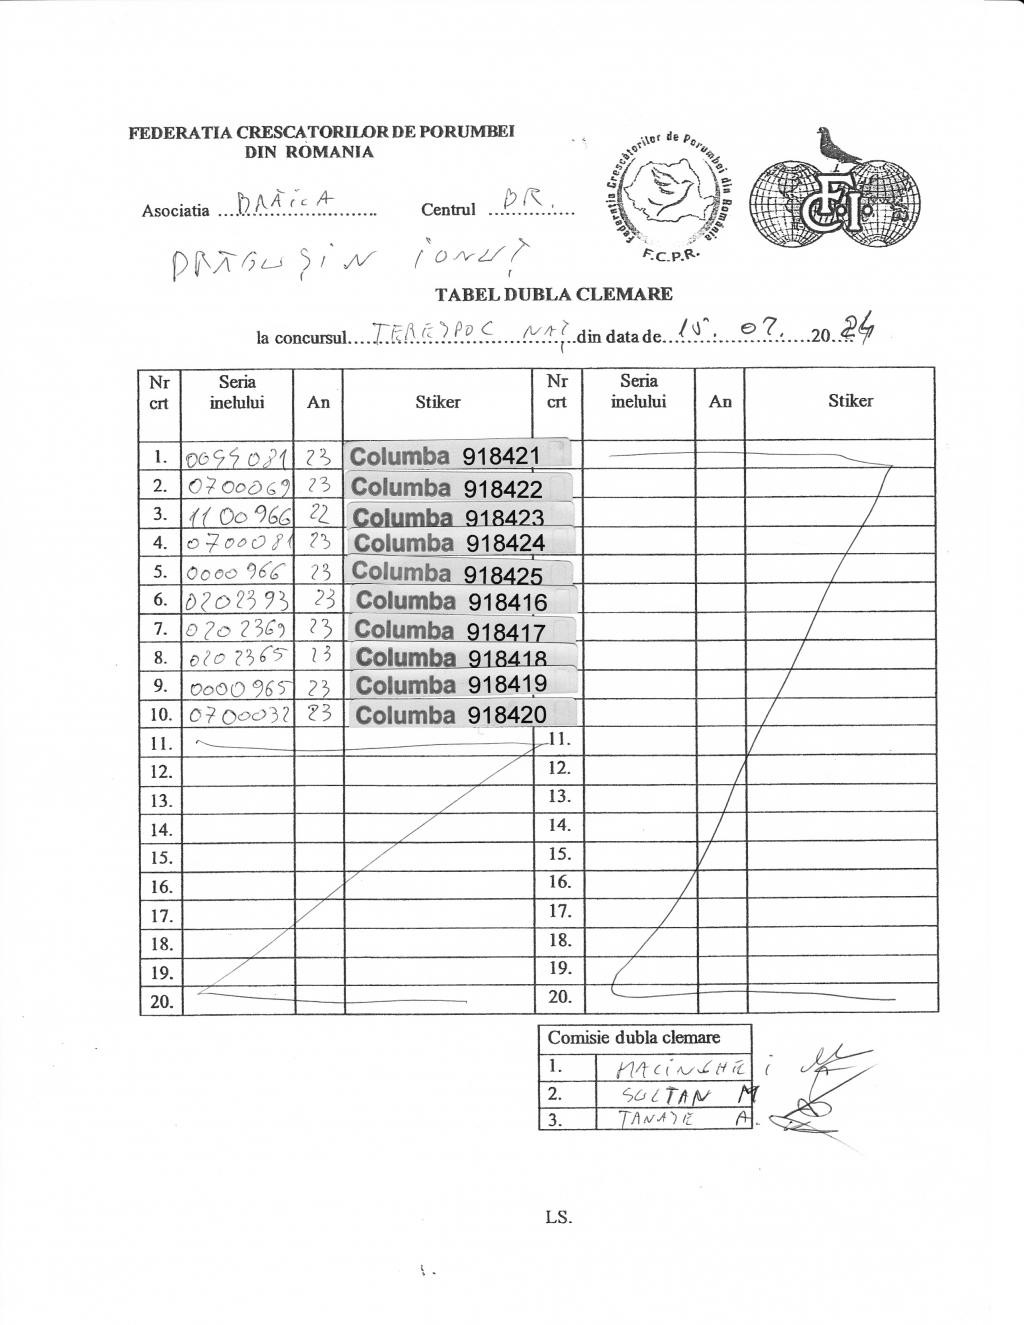 FEDERATIA CRESCATORILOR DE PORUMBEI
DIN ROMANIA
Federatia Crescătorilor de Porumbei din România
F.C.P.R.
F.C.I.
Asociatia BRĂILA Centrul BR.
DRĂGUȘIN IONUȚ
TABEL DUBLA CLEMARE
la concursul TERESPOL NAȚ din data de 15. 07. 2024
Nr crt Seria inelului An Stiker Nr crt Seria inelului An Stiker
1. 23 Columba 918421
2. 0700069 23 Columba 918422
3. 1100966 22 Columba 918423
4. 0700081 23 Columba 918424
5. 0000966 23 Columba 918425
6. 0202393 23 Columba 918416
7. 0202369 23 Columba 918417
8. 0202365 23 Columba 918418
9. 0000965 23 Columba 918419
10. 0700032 23 Columba 918420
11. 11.
12. 12.
13. 13.
14. 14.
15. 15.
16. 16.
17. 17.
18. 18.
19. 19.
20. 20.
Comisie dubla clemare
1. I
2. SULTAN M
3. TANASE A.
LS.